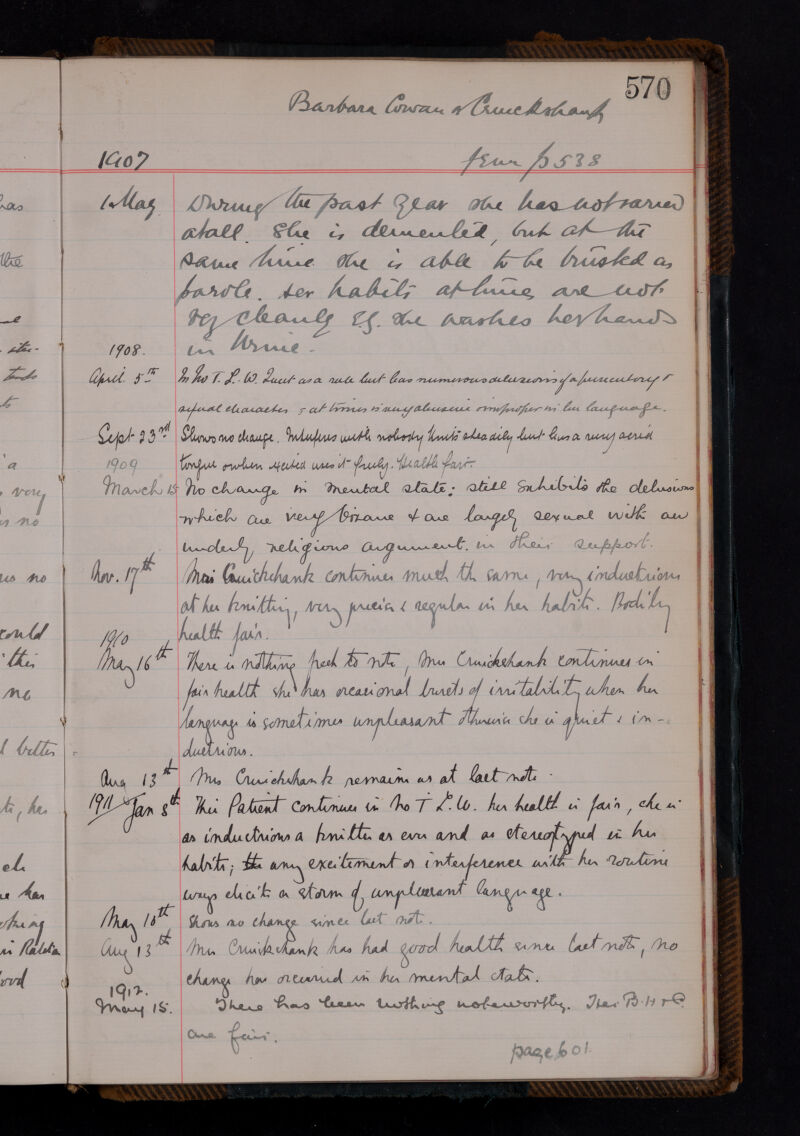 570
Barbara Cowan or Cruickshank
1907
from p 538
1 May During the past year she has not varied
atall. She is demented, but at the
same time she is able to be trusted on
parole. Her habits at times are not
very cleanly Eg. she washes her hands
1908. in Urine.
April 5th In No T. L. W. Quiet as a rule but has numerous delusions of a persecutory &
sexual character & at times is very abusive & improper in her language.
Sept 23rd Shows no change. Interferes with nobody Knits steadily but has a very acrid
1909 tongue & when excited uses it freely. Health fair.
March 15 No change in mental state; still exhibits the delusions
which are very bizarre & are largely sexual with an
underly religious argument in their support.
Nov. 17th Mrs Cruickshank continues much the same, very industrious
at her knitting, very precise & regular in her habits. Bodily
1910 health fair.
May 16th There is nothing fresh to note, Mrs Cruickshank continues in
fair health she has occasional bursts of irritability when her
language is sometimes unpleasant otherwise she is quiet & in-
dustrious.
Aug 13th Mrs Cruickshank remains as at last note.
1911 Jan 8th This Patient continues in No T L. W. her health is fair, she is
as industrious a knitter as ever and as stereotyped in her
habits; any excitement or interference with her routine
ways elicits a storm of unpleasant language.
May 10th Shows no change since last not.
Aug 13th Mrs Cruickshank has had good health since last note, no
change has occurred in her mental state.
1912.
May 15. There has been nothing noteworthy. Her B.H & C.
are fair.
page 601
has
the
a
very
no
no
could
this
no
better
has